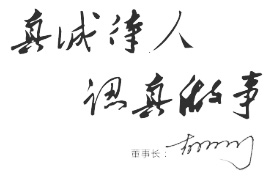 真诚待人
认真做事
董事长：